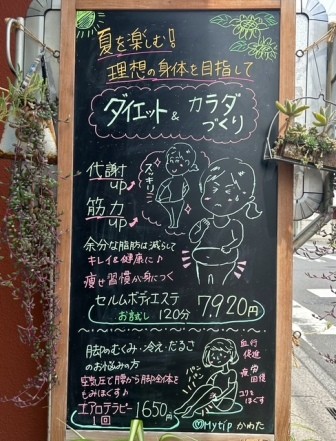 夏を楽しむ!
理想の身体を目指して
ダイエット& カラダづくり
代謝up
筋力up
スッキリ
余分な脂肪は減らして
キレイ&健康に♪
痩せ習慣が身につく
セルムボディエステ
お試し 120分 7,920円
脚のむくみ・冷え・だるさ
のお悩みの方
空気圧で腰から脚全体を
もみほぐす♪
エアロテラピー
1回 1650円
パンパン
血行促進
疲労回復
コリほぐす
♡Mytip かわた